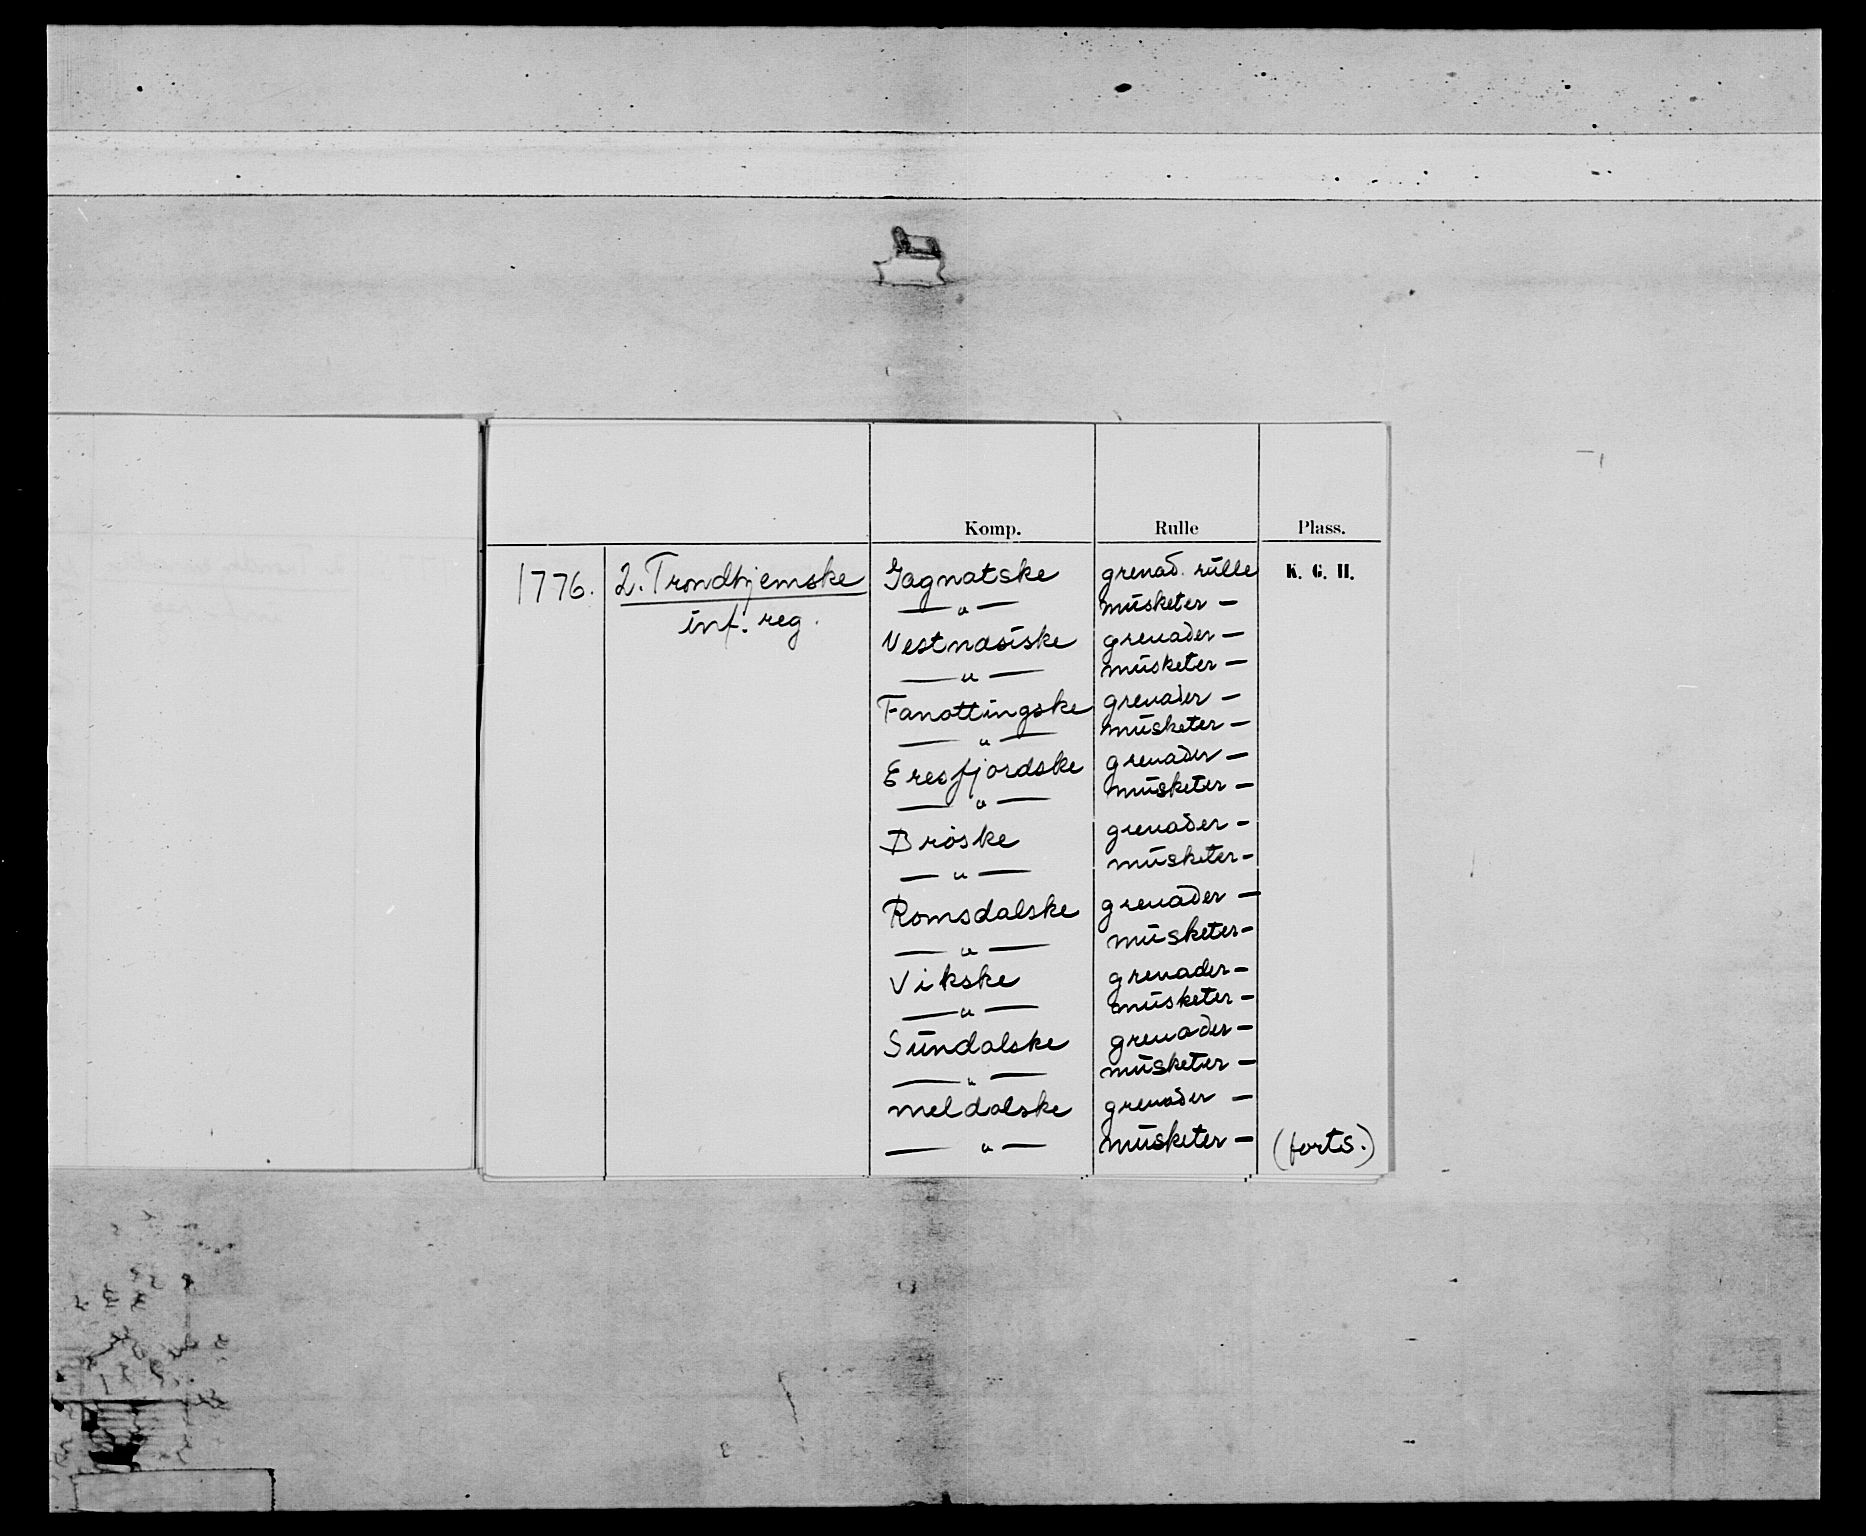 Komp. Rulle Plass.
1776. 2. Trondhjemske Gagnatske grenad. rulle K. G. H.
inf. reg. — " — musketer —
Vestnæsiske grenader —
— " — musketer —
Fanottingske grenader —
— " — musketer —
Eresfjordske grenader —
— " — musketer —
Brøske grenader —
— " — musketer —
Romsdalske grenader —
— " — musketer —
Vikske grenader —
— " — musketer —
Sundalske grenader —
— " — musketer —
Meldalske grenader —
— " — musketer — (forts.)